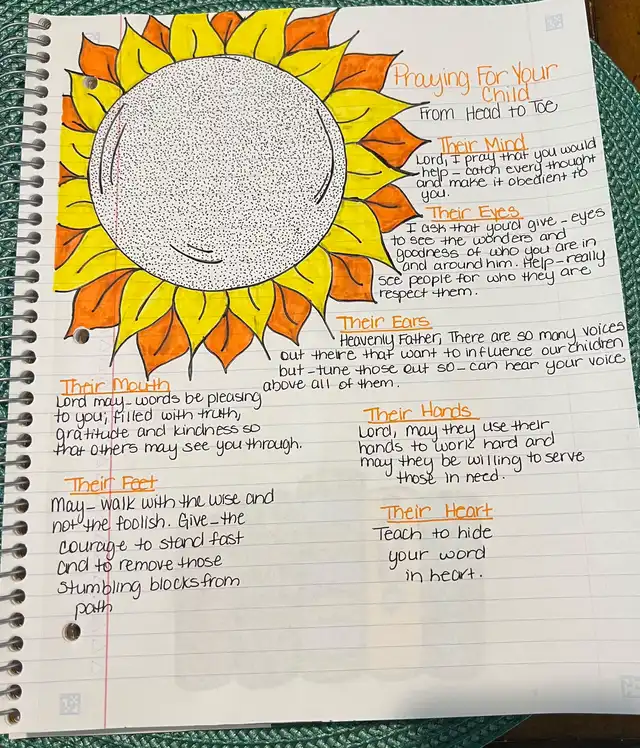 Praying For Your
Child
From Head to Toe
Their Mind
Lord, I pray that you would
help - catch every thought
and make it obedient to
you.
Their Eyes
I ask that you'd give - eyes
to see the wonders and
goodness of who you are in
and around him. Help - really
see people for who they are
respect them.
Their Ears
Heavenly Father, There are so many voices
out there that want to influence our children
but - tune those out so - can hear your voice
above all of them.
Their Mouth
Lord may - words be pleasing
to you; filled with truth,
gratitude and kindness so
that others may see you through.
Their Hands
Lord, may they use their
hands to work hard and
may they be willing to serve
those in need.
Their Feet
May - walk with the wise and
not the foolish. Give - the
courage to stand fast
and to remove those
stumbling blocks from
path
Their Heart
Teach to hide
your word
in heart.